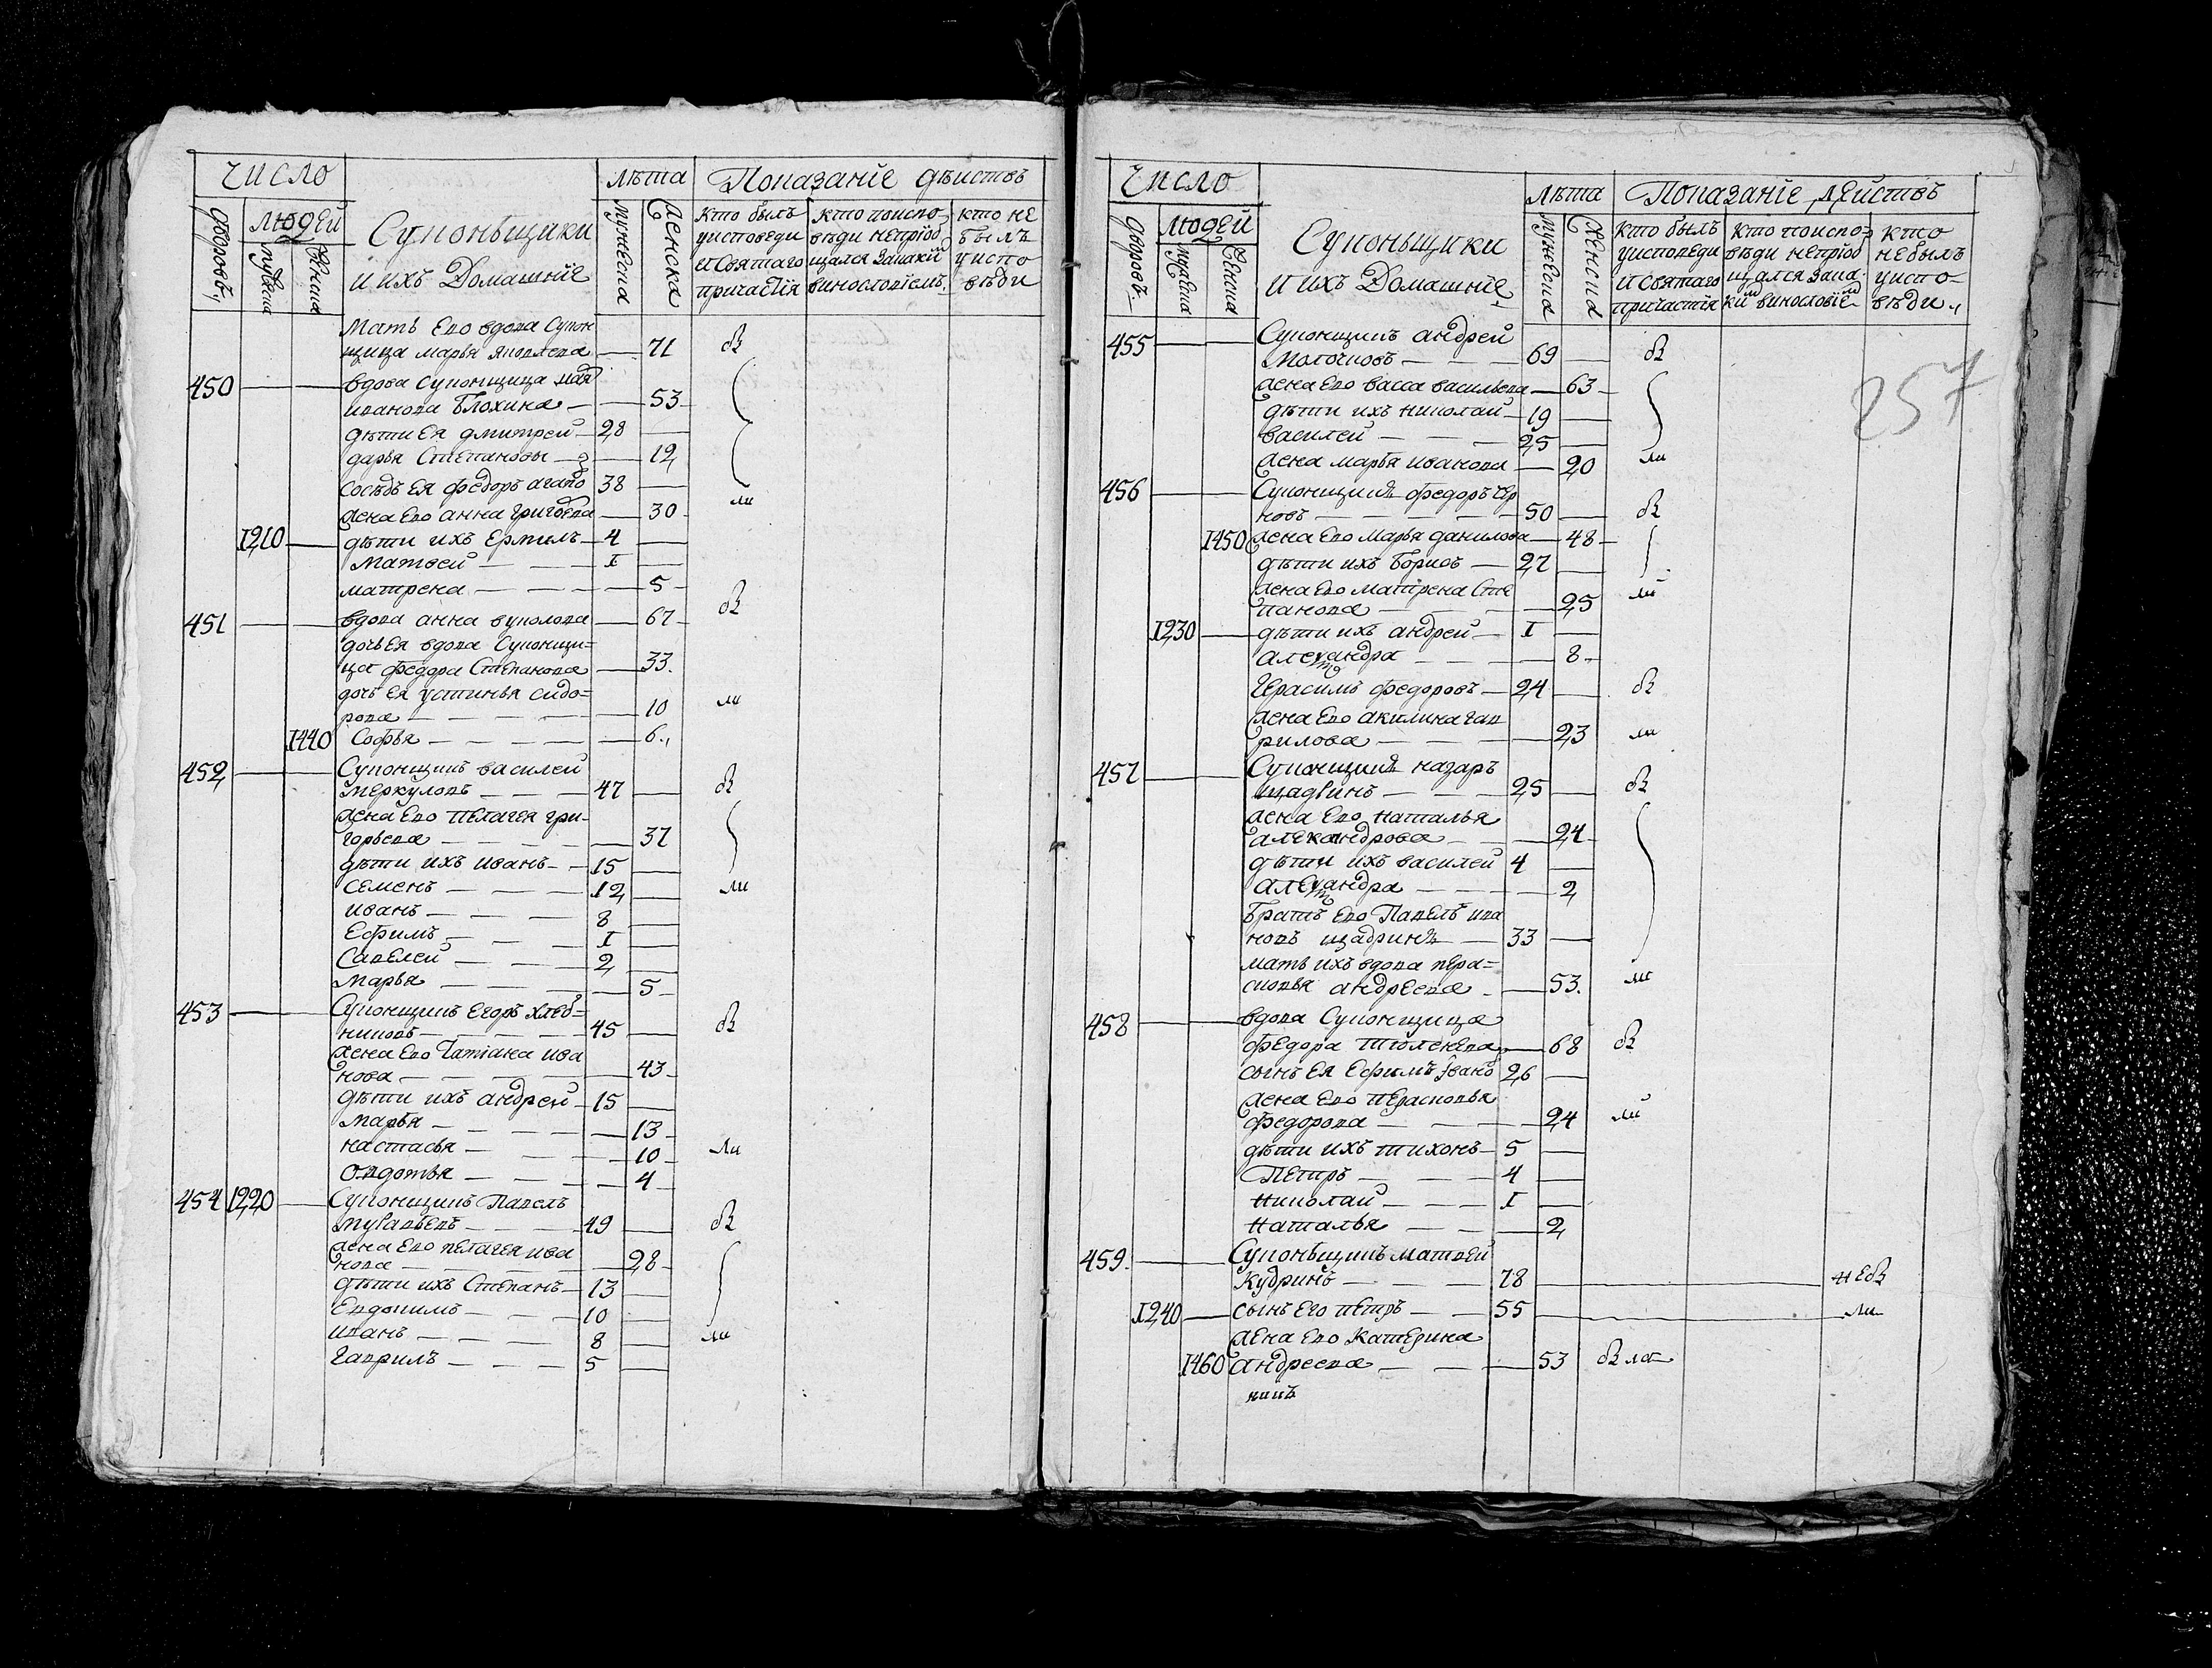 ЧИСЛО
лѣта Показанїе дѣистовъ
дворовъ людей
мужеска женска
Суконьщики
и ихъ Домашнїе
мужеска женска
кто былъ
уисповеди
и святаго
причастїя
кто поиспо
вѣди непрїоб
щался за каким
винословїемъ
кто не
былъ
уиспо
вѣди
Мать Ево вдова Сукон
щица марья яковлева — 71 бы
450 — — вдова суконщица
иванова Блохина — — 53
дѣти Ея дмитреи — 28 —
дарья Степановы — — 12
Сосѣдъ Ея федоръ агапо 38 —
жена Ево анна григорева — 30 ли
1210 — дѣти ихъ Ермилъ — 4 —
Матвеи — — — I —
матрена — — — — 5
451 — — вдова анна вуколова — 67 бы
дочь Ея вдова Суконщи=
ца федора Степанова — 33
дочь ея устинья сидо=
рова — — — — — 10 ли
1440 Софья — — — — — 6
452 — — Суконщикъ василеи
меркуловъ — — — 47 — бы
жена Ево Пелагея гри=
горьева — — — — — 37
дѣти ихъ иванъ — 15 —
семенъ — — — 12 — ли
иванъ — — — 8 —
Ефимъ — — — I —
Савелеи — — — 2 —
марья — — — — 5
453 — — Суконщикъ Егоръ хлеб=
никовъ — — — 45 — бы
жена Ево Татїана ива
нова — — — — — 43
дѣти ихъ андреи — 15 —
Марья — — — — 13
настасья — — — 10 ли
овдотья — — — — 4
454 1220 — Суконщикъ Павелъ
— — — 49 — бы
жена Ево пелагея ива
нова — — — — — 28
дѣти ихъ Степанъ — 13 —
Евдокимъ — — — 10 —
иванъ — — — 8 — ли
гаврилъ — — — 5 —
ЧИСЛО
лѣта Показанїе деистовъ
дворовъ людей
мужеска женска
Суконьщики
и ихъ Домашнїе
мужеска женска
кто былъ
уисповеди
и святаго
причастїя
кто поиспо
вѣди непрїоб
щался зака
ким винословїе
кто
небылъ
уиспо=
вѣди
257
455 — — Суконщикъ андреи
Молочновъ — — — 69 — бы
жена Ево васса васильева — 63
дѣти ихъ николаи — 19 —
василеи — — — 25 —
жена марья иванова — 20 ли
456 — — Суконщикъ федоръ чер
новъ — — — — 50 — бы
1450 жена Ево Марья данилова — 48
дѣти ихъ Борисъ — 27 —
жена Ево Матрена Сте
панова — — — — 25 ли
1230 — дѣти ихъ андреи — I —
александра — — — 8
Герасимъ федоровъ — 24 — бы
жена Ево акилина гав
рилова — — — — 23 ли
457 — — Суконщикъ назаръ
щадринъ — — — 25 — бы
жена Ево Наталья
александрова — — — 24
дѣти ихъ василеи 4 —
александра — — — 2
Братъ Ево Павелъ ива
новъ щадринъ — 33 —
мать ихъ вдова пера=
сковья андреева — 53 ли
458 — — вдова Суконщица
федора — 68 бы
сынъ Ея Ефимъ Iвано 26 —
жена Ево перасковья
федорова — — — — 24 ли
дѣти ихъ тихонъ — 5 —
Петръ — — — 4 —
николаи — — — I —
Наталья — — — 2
459 — — Суконьщикъ матвеи
Кудринъ — — — 78 — небы
1240 — сынъ Его петръ — — 55 — ли
жена Ево Катерина
1460 андреева — — — 53 была